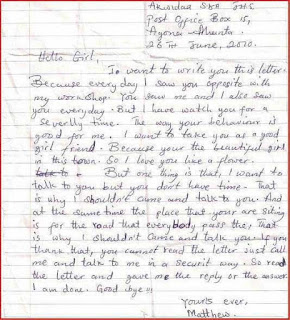 Post Office Box 15,
28TH June, 2010.
Hello Girl,
I want to write you this letter.
Because everyday I saw you opposite with
my workshop. You saw me and I also saw
you everyday. But I have watch you for a
severally time. The way your behaviour is
good for me. I want to take you as a good
girl friend. Because your the beautiful girl
in this town. So I love you like a flower.
But one thing is that, I want to
talk to you but you don't have time. That
is why I shouldn't came and talk to you. And
at the same time the place that your are siting
is for the road that everybody pass the, that
is why I shouldn't came and talk you. If you
thank that, you cannot read the letter just call
me and talk to me in a securit way. So read
the letter and gave me the reply or the answer.
I am done. Good bye!!!
Yours ever,
Matthew.